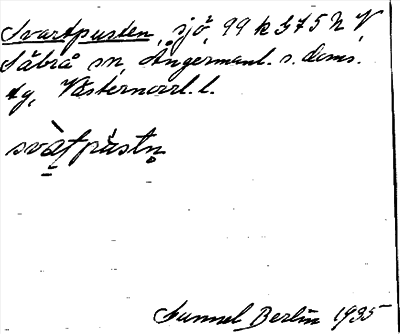 Svartpusten, sjö, 99 k 575 N V,
Säbrå sn, Ångermanl. s. doms.
tg, Västernorrl. l.
svàṭpùstn̥
Gunnel Berlin 1935